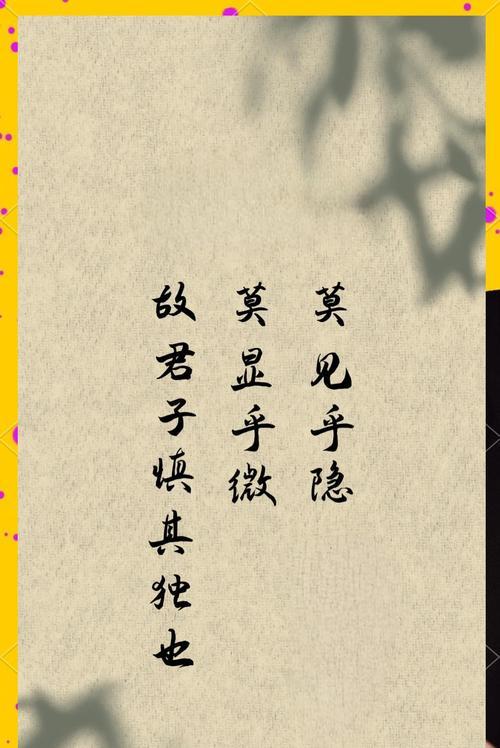 莫见乎隐
莫显乎微
故君子慎其独也